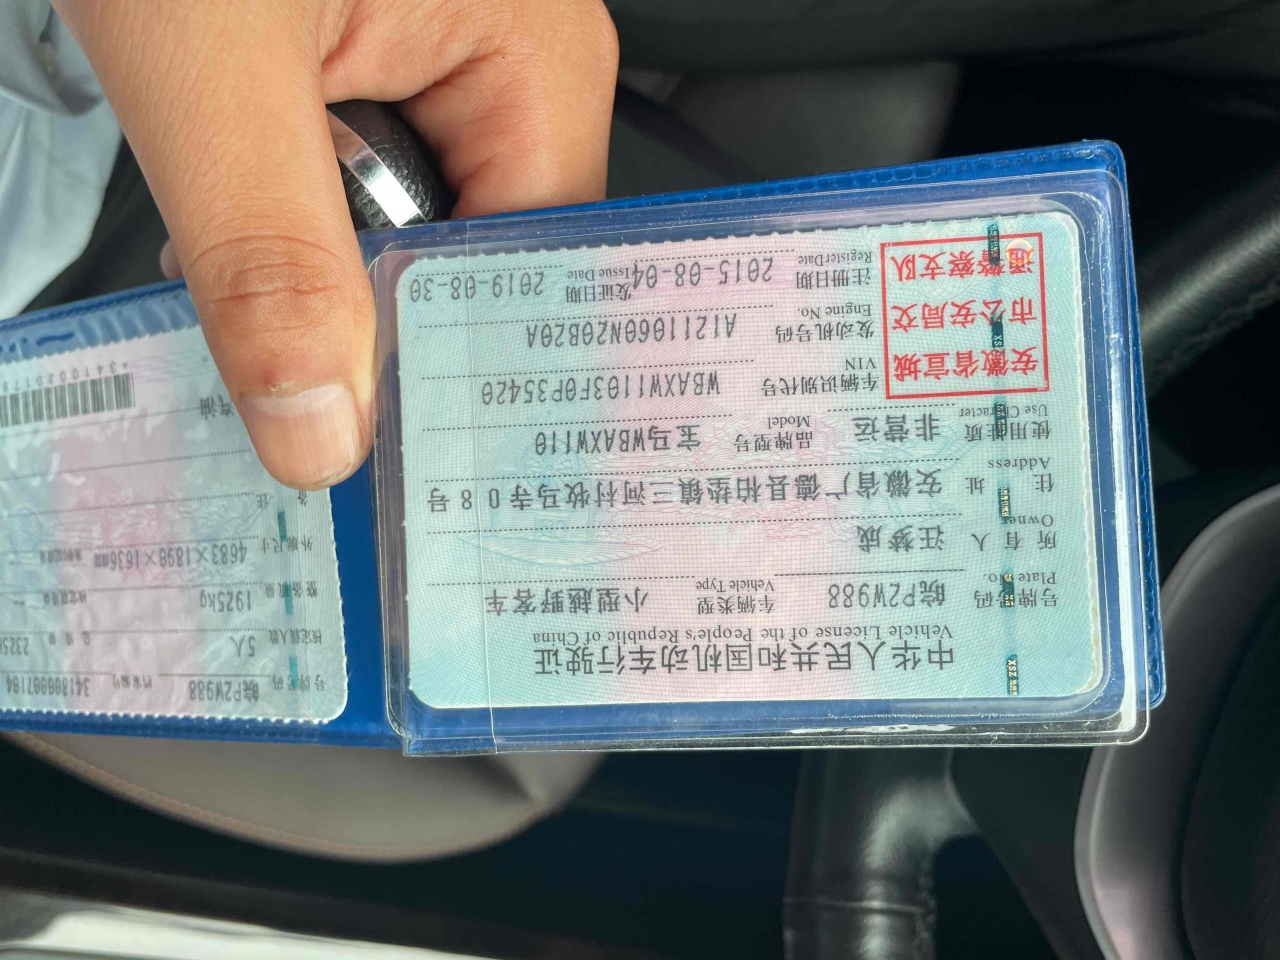 中华人民共和国机动车行驶证
Vehicle License of the People's Republic of China
号牌号码 皖P2W988 车辆类型 小型越野客车
Plate No. Vehicle Type
所有人 汪梦成
Owner
住址 安徽省广德县柏垫镇三河村牧马寺08号
Address
使用性质 非营运 品牌型号 宝马WBAXW110
Use Character Model
安徽省宣城
市公安局交
通警察支队
车辆识别代号 WBAXW1103F0P35420
VIN
发动机号码 A1211060N20B20A
Engine No.
注册日期 2015-08-04 发证日期 2019-08-30
Register Date Issue Date
号牌号码 皖P2W988 档案编号 341800007184
核定载人数 5人 总质量
整备质量 1925kg 核定载质量
外廓尺寸 4683×1898×1636mm
备注
汽油
XSZ